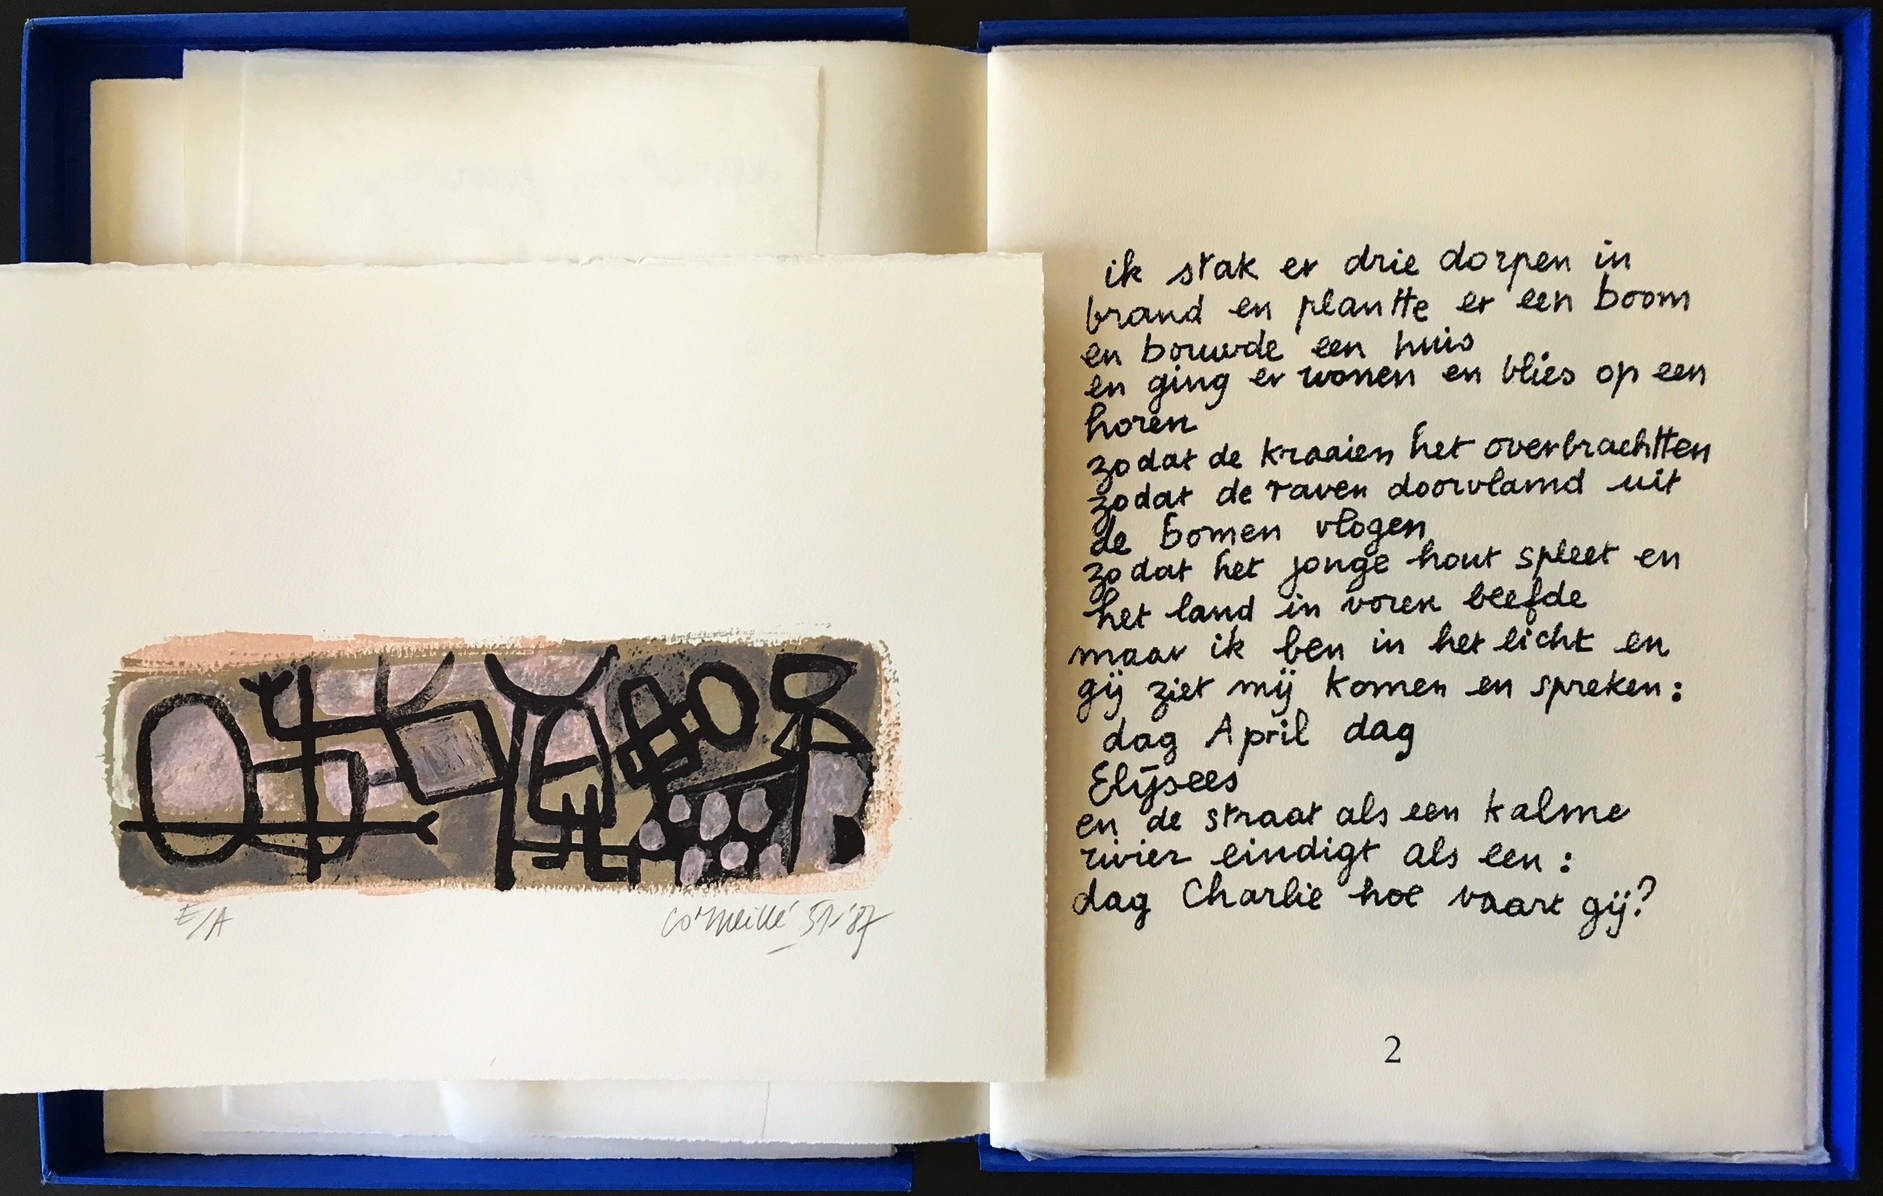 E/A
Corneille '51-'87
ik stak er drie dorpen in
brand en plantte er een boom
en bouwde een huis
en ging er wonen en blies op een
horen
zodat de kraaien het overbrachtten
zodat de raven doorvlamd uit
de bomen vlogen
zodat het jonge hout spleet en
het land in voren beefde
maar ik ben in het licht en
gij ziet mij komen en spreken:
dag April dag
Elijsees
en de straat als een kalme
rivier eindigt als een:
dag Charlie hoe vaart gij?
2